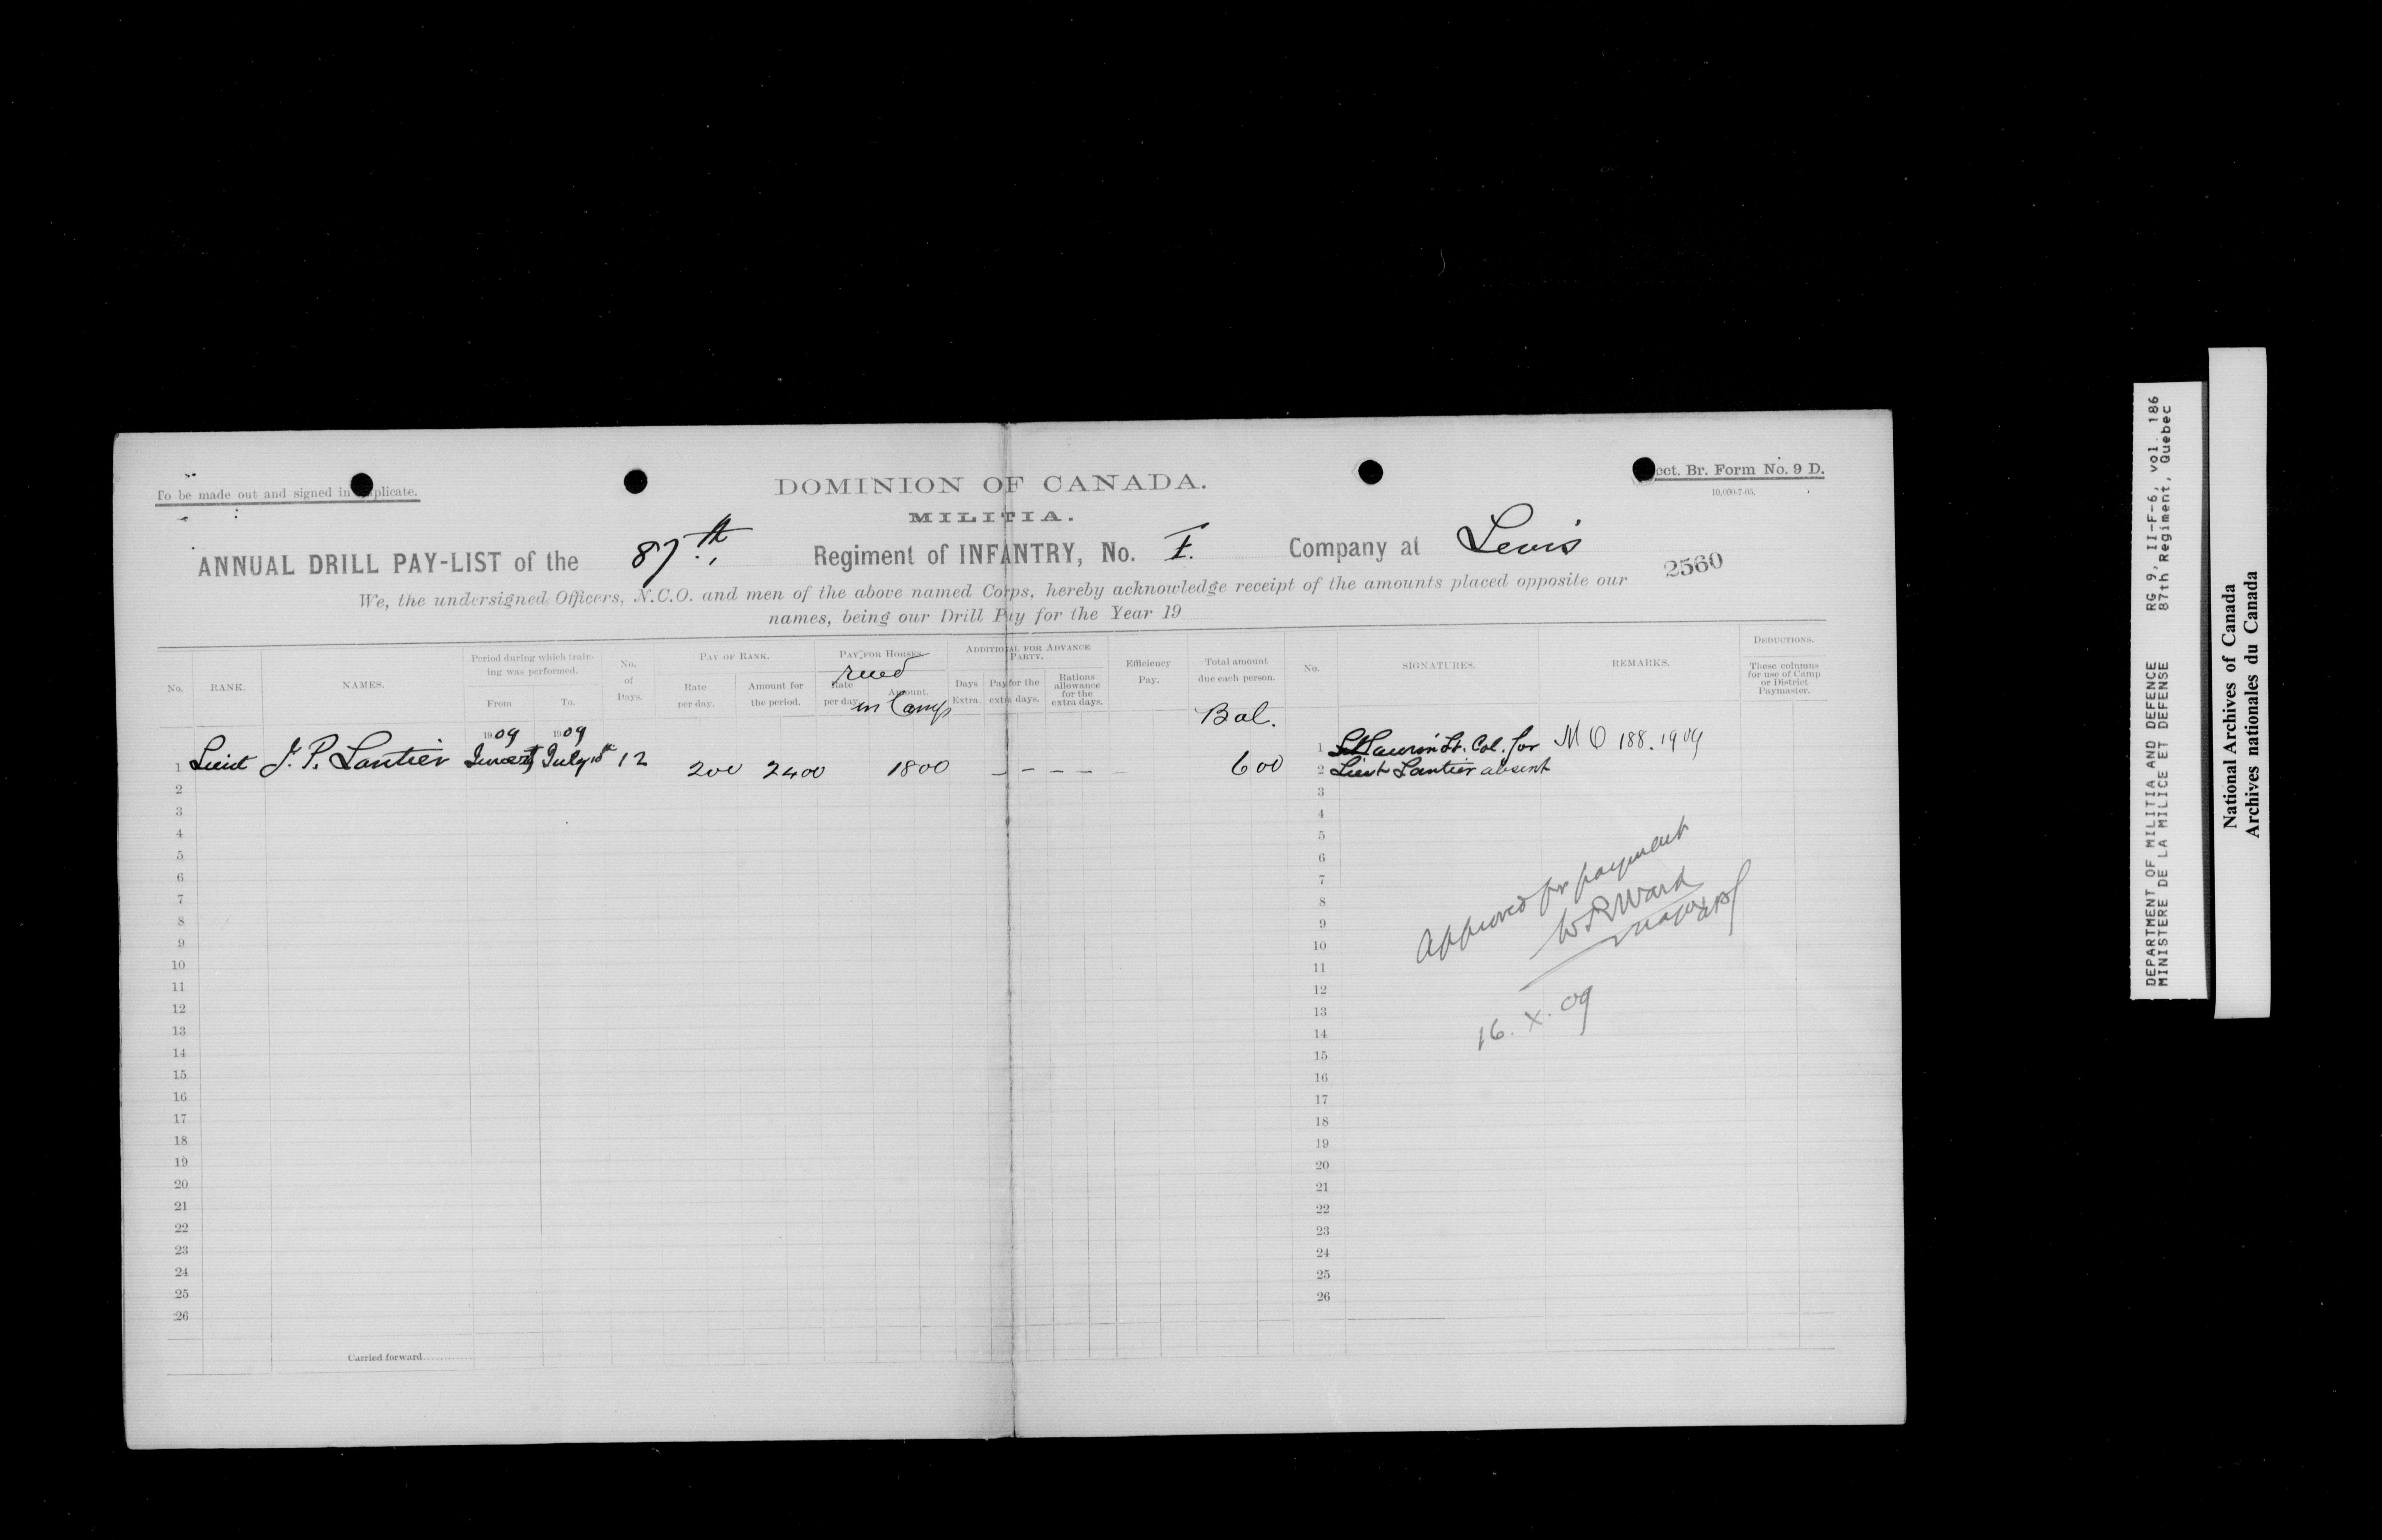 To be made out and signed in plicate.
DOMINION OF CANADA.
cct. Br. Form No. 9 D.
10,000-7-05.
MILITIA.
ANNUAL DRILL PAY-LIST of the 87th Regiment of INFANTRY, No. F. Company at Levis
2560
We, the undersigned, Officers, N.C.O. and men of the above named Corps, hereby acknowledge receipt of the amounts placed opposite our
names, being our Drill Pay for the Year 19
No. RANK. NAMES. Period during which training was performed. From To. No. of Days. PAY OF RANK. Rate per day. Amount for the period. PAY FOR HORSES. Rate per day. Amount. ADDITIONAL FOR ADVANCE PARTY. Days Extra. Pay for the extra days. Rations allowance for the extra days. Efficiency Pay. Total amount due each person. No. SIGNATURES. REMARKS. DEDUCTIONS. These columns for use of Camp or District Paymaster.
in Camp
Bal.
1909 1909
1 Lieut J. P. Lantier July 12 200 2400 1800 — – – – – 600 1 Lt. Col. for M O 188.1909
2 2 Lieut Lantier absent
3 3
4 4
5 5
6 6
7 7
8 8
9 9
10 10
11 11
12 12
13 13
14 14
15 15
16 16
17 17
18 18
19 19
20 20
21 21
22 22
23 23
24 24
25 25
26 26
Approved for payment
W R Ward
Major
16. X. 09
Carried forward
DEPARTMENT OF MILITIA AND DEFENCE RG 9, II-F-6, vol. 186
MINISTERE DE LA MILICE ET DEFENSE 87th Regiment, Quebec
National Archives of Canada
Archives nationales du Canada